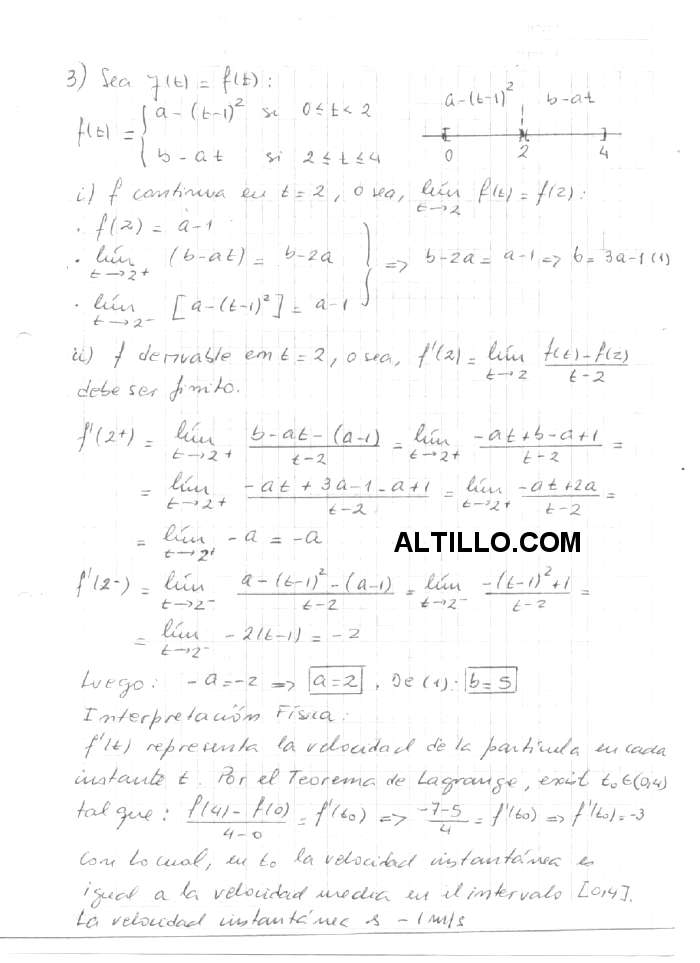 3) Sea y(t) = f(t):
f(t) = { a-(t-1)² si 0 ≤ t < 2
b-at si 2 ≤ t ≤ 4
a-(t-1)² b-at
0 2 4
i) f continua en t=2, o sea, lím t→2 f(t) = f(2):
· f(2) = a-1
· lím t→2+ (b-at) = b-2a
· lím t→2- [a-(t-1)²] = a-1
} => b-2a = a-1 => b = 3a-1 (1)
ii) f derivable em t=2, o sea, f'(2) = lím t→2 (f(t)-f(2))/(t-2)
debe ser finito.
f'(2+) = lím t→2+ (b-at-(a-1))/(t-2) = lím t→2+ (-at+b-a+1)/(t-2) =
= lím t→2+ (-at+3a-1-a+1)/(t-2) = lím t→2+ (-at+2a)/(t-2) =
= lím t→2+ -a = -a
ALTILLO.COM
f'(2-) = lím t→2- (a-(t-1)²-(a-1))/(t-2) = lím t→2- (-(t-1)²+1)/(t-2) =
= lím t→2- -2(t-1) = -2
Luego: -a=-2 => a=2, De (1): b=5
Interpretación Física:
f'(t) representa la velocidad de la partícula en cada
instante t. Por el Teorema de Lagrange, exist t₀∈(0,4)
tal que: (f(4)-f(0))/(4-0) = f'(t₀) => (-7-5)/4 = f'(t₀) => f'(t₀)=-3
Con lo cual, en t₀ la velocidad instantánea es
igual a la velocidad media en el intervalo [0,4].
La velocidad instantánea s -1 m/s